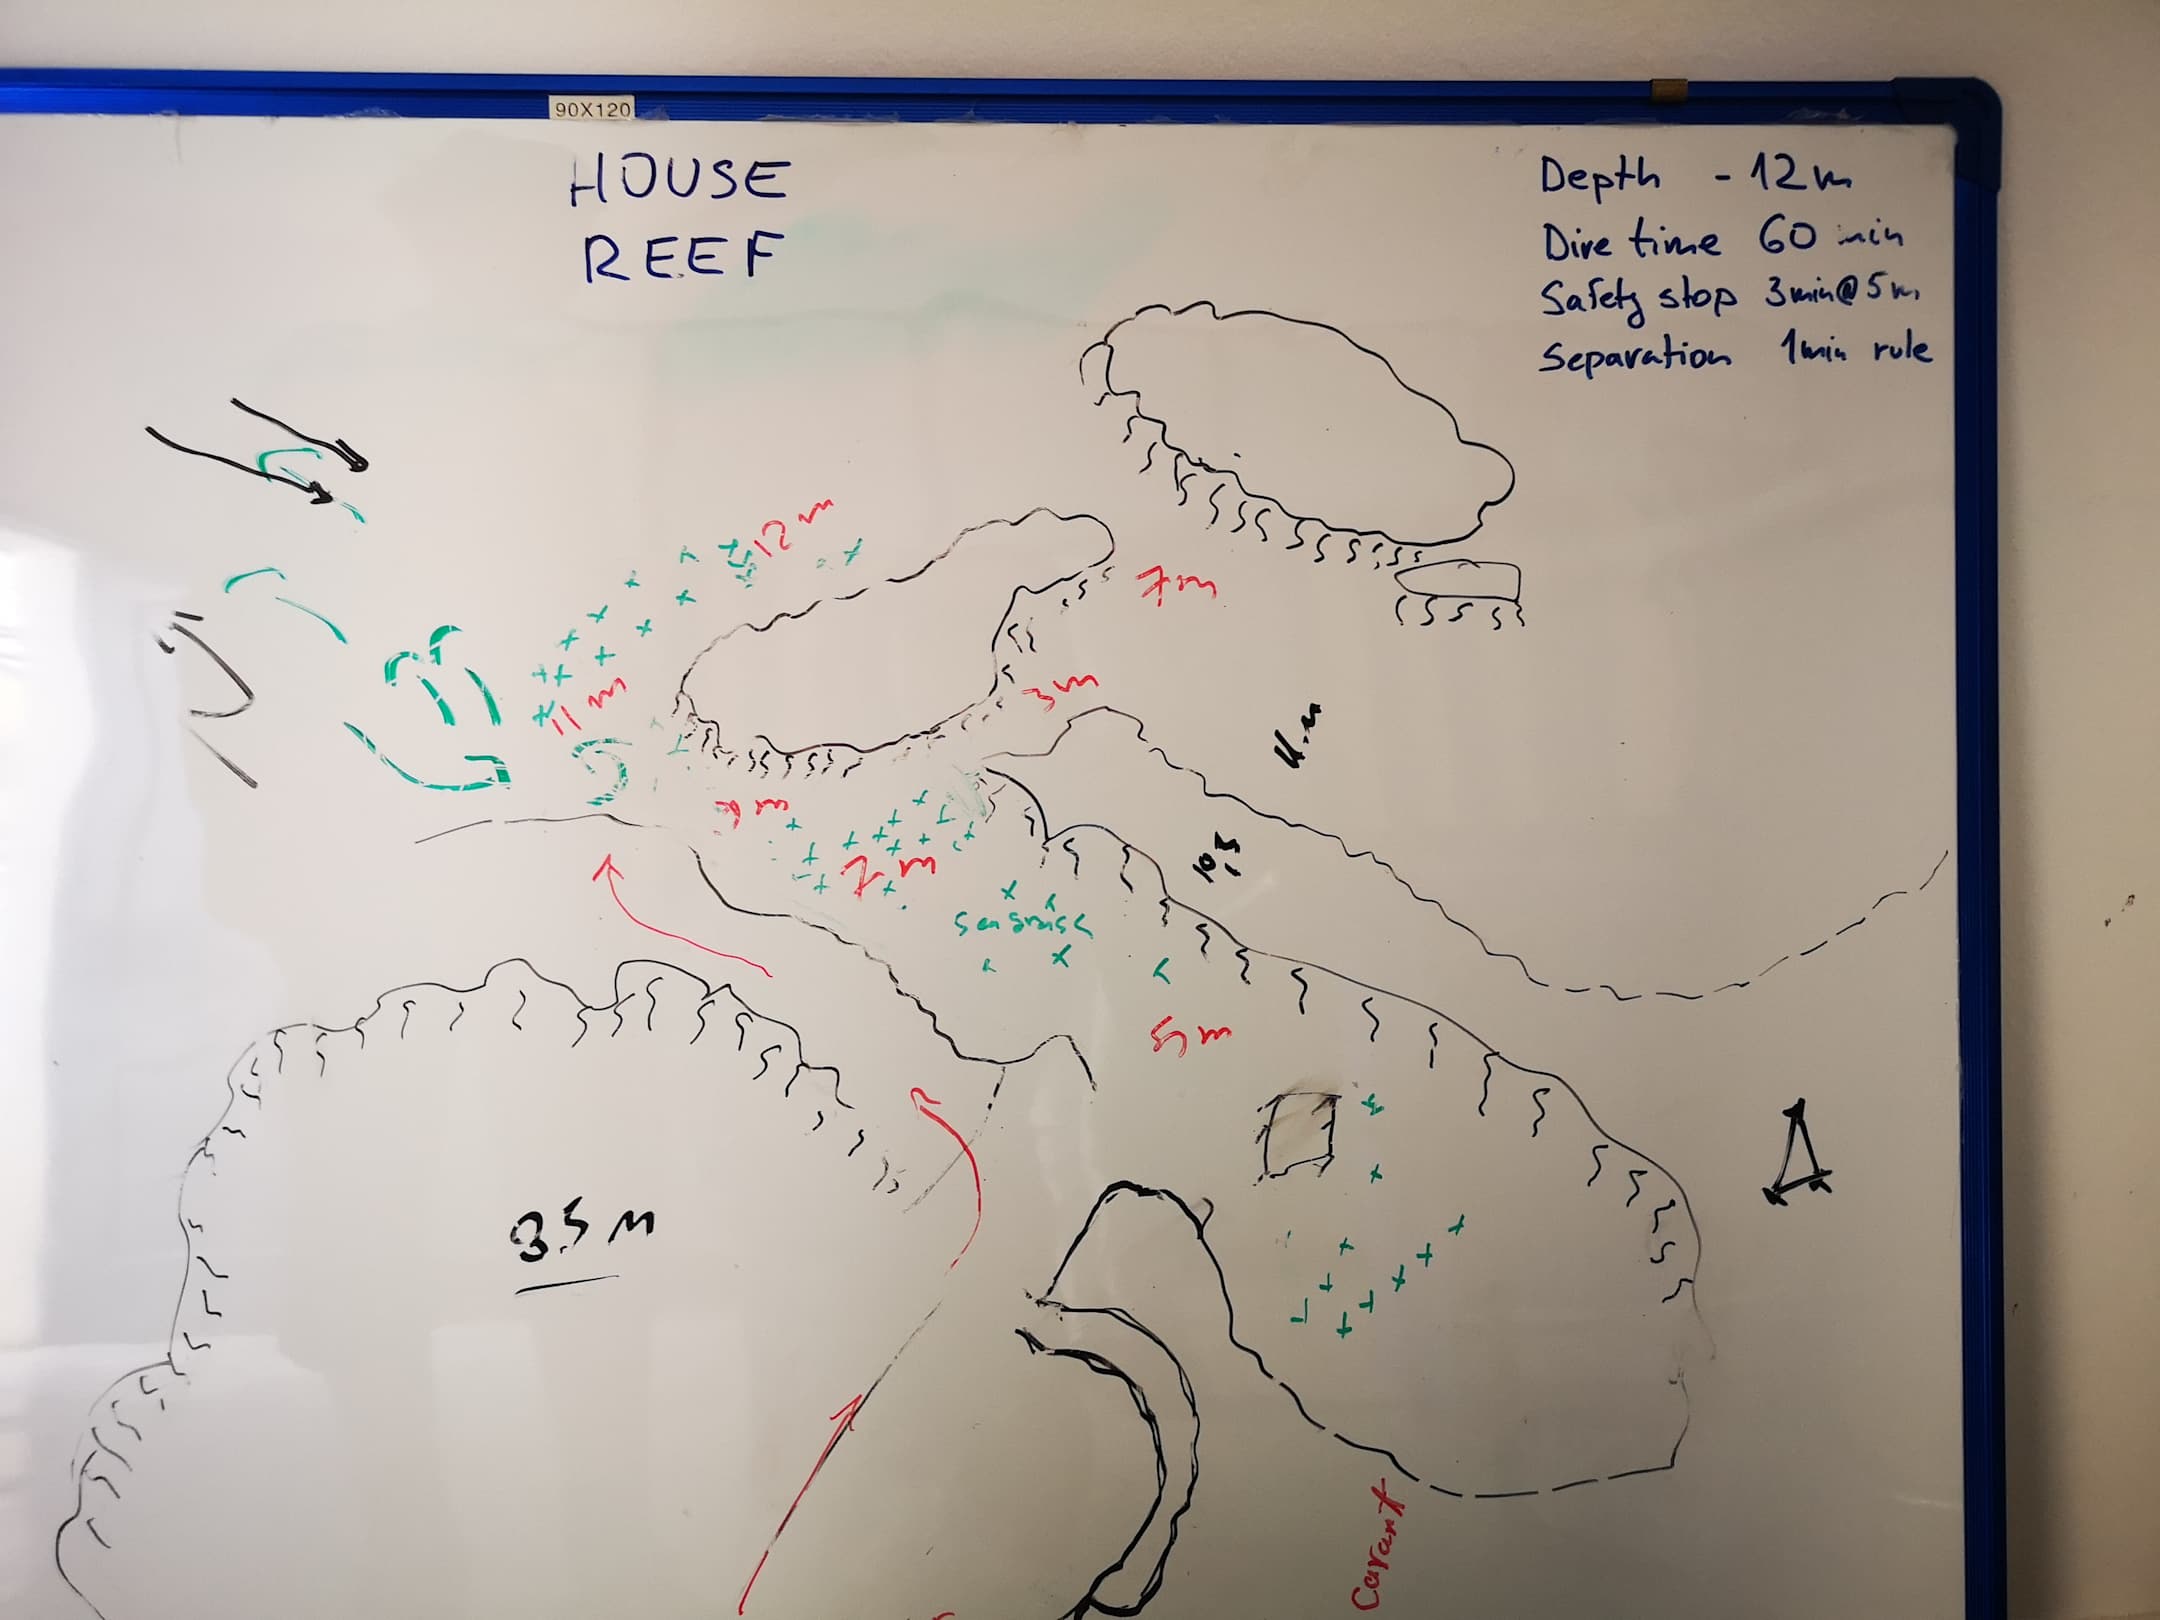 90X120
HOUSE
REEF
Depth - 12m
Dive time 60 min
Safety stop 3min@5m
Separation 1min rule
12m
7m
11m
3m
7m
5m
3.5M
Carant